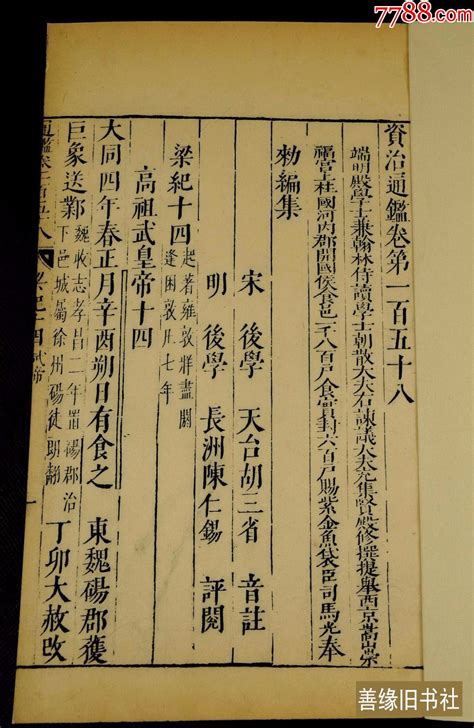 7788.com
資治通鑑卷第一百五十八
端明殿學士兼翰林侍讀學士朝散大夫右諫議大夫充集賢殿修撰提舉西京嵩山崇
福宮上柱國河內郡開國侯食邑一千八百戶食實封六百戶賜紫金魚袋臣司馬光奉
勑編集
宋 後學 天台胡三省 音註
明 後學 長洲陳仁錫 評閱
梁紀十四 起著雍敦牂盡閼
逢困敦凡七年
高祖武皇帝十四
大同四年春正月辛酉朔日有食之 東魏碭郡獲
巨象送鄴 魏收志孝昌二年置碭郡治
下邑城屬徐州碭徒郎翻 丁卯大赦改
通鑑卷一百五十八 梁紀 武帝 一
善缘旧书社